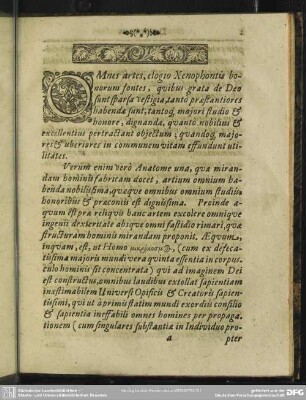 OMnes artes, elogio Xenophontis bo-
norum fontes, quibus grata de Deo
sunt sparsa vestigia, tantò præstantiores
habendæ sunt, tantoq; majori studio &
honore, dignandæ, quantò nobilius &
excellentius pertractant objectum; quandoq; majo-
res & uberiores in communem vitam effundunt uti-
litates.
Verum enim verò Anatome una, quæ miran-
dam hominis fabricam docet, artium omnium ha-
benda nobilissima, quæque omnibus omnium studiis,
honoribus & præconiis est dignissima. Proinde æ-
quum est præ reliquis hanc artem excolere omnique
ingenii dexteritate absque omni fastidio rimari, quæ
structuram hominis mirandam proponit. Æquum,
inquam, est, ut Homo (cum ex defeca-
tissima majoris mundi vera quinta essentia in corpus-
culo hominis sit concentrata) qui ad imaginem Dei
est constructus, omnibus laudibus extollat sapientiam
inæstimabilem Universi Opificis & Creatoris sapien-
tissimi, qui ut à primis statim mundi exordiis consilio
& sapientia ineffabili omnes homines per propaga-
tionem (cum singulares substantiæ in Individuo pro-
a pter